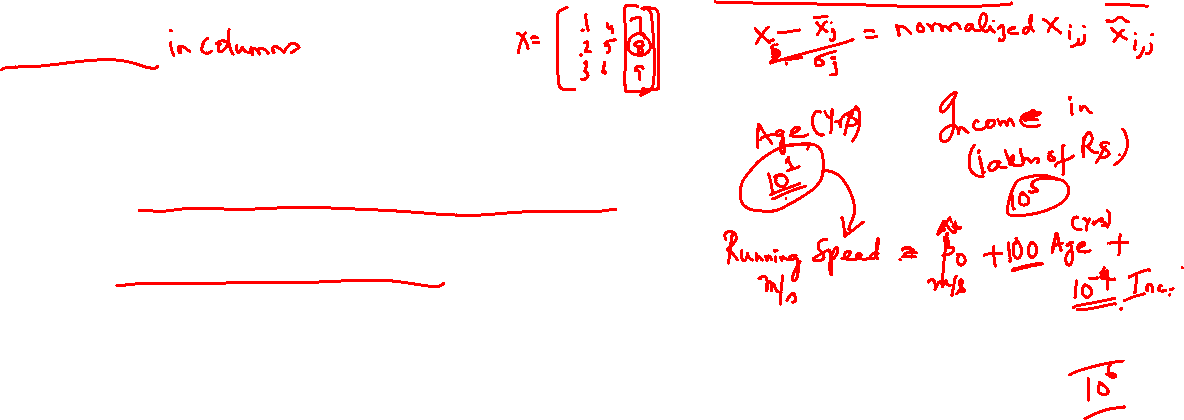 in columns
X = [ 1 4 7
2 5 8
3 6 9 ]
X - x̄j / σj = normalized Xi,j x̂i,j
Age (Yrs)
10^1
Income in
(lakhs of Rs.)
10^5
Running Speed = β̂0 + 100 Age (Yrs) +
m/s m/s
10^-4 Inc.
10^5